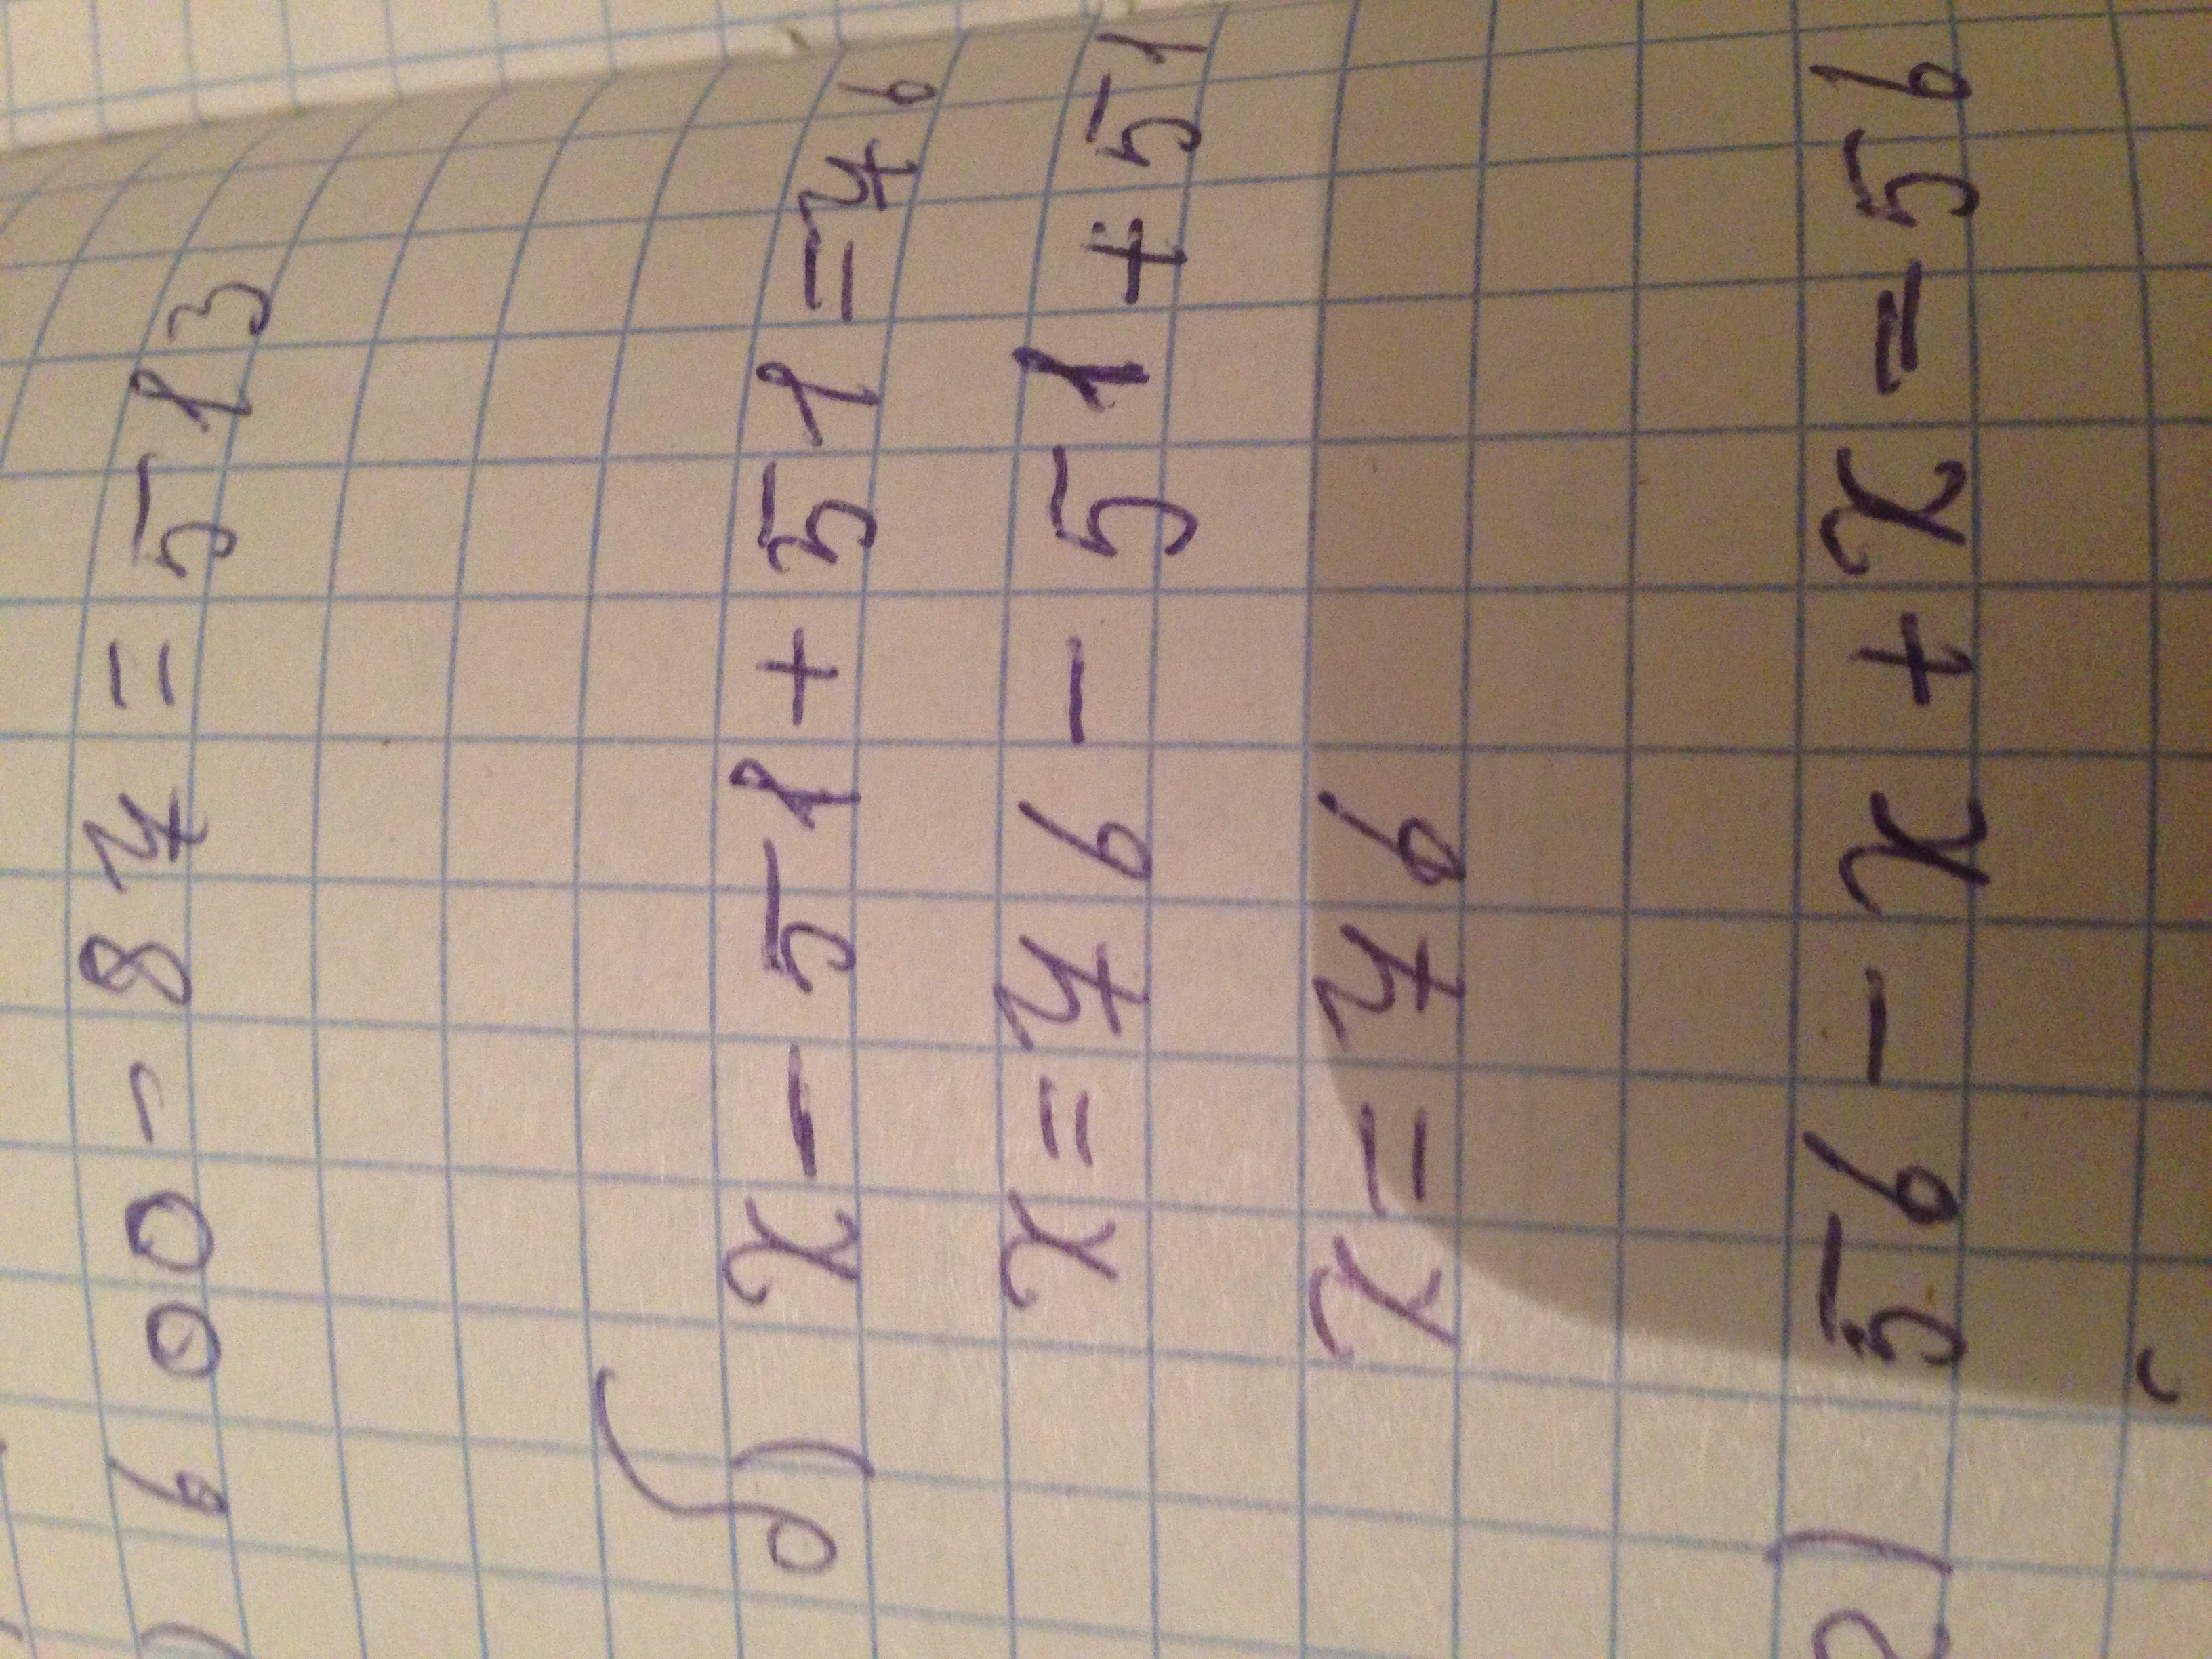 ) 600 - 87 = 513
б) x - 51 + 51 = 76
x = 76 - 51 + 51
x = 76
г) 56 - x + x = 56